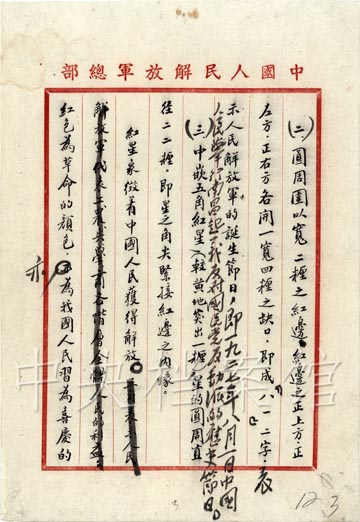 中國人民解放軍總部
(二)圓周圍以寬二種之紅邊。紅邊之正上方、正
左方、正右方各開一寬四種之缺口,即成八一二字,表
示人民解放軍的誕生節日,即一九二七年八月一日中國
人民舉行南昌起義反對國民黨反動派的
節日。
(三)中嵌五角紅星
黃地
的圓周直
徑二二種,即星之角尖緊接紅邊之內緣。
紅星象徵着中國人民獲得解放。
人民
解放軍代表工農
各階層全體人民的利益。
紅色為革命的顏色
亦為我國人民習為喜慶的
中央檔案館
123